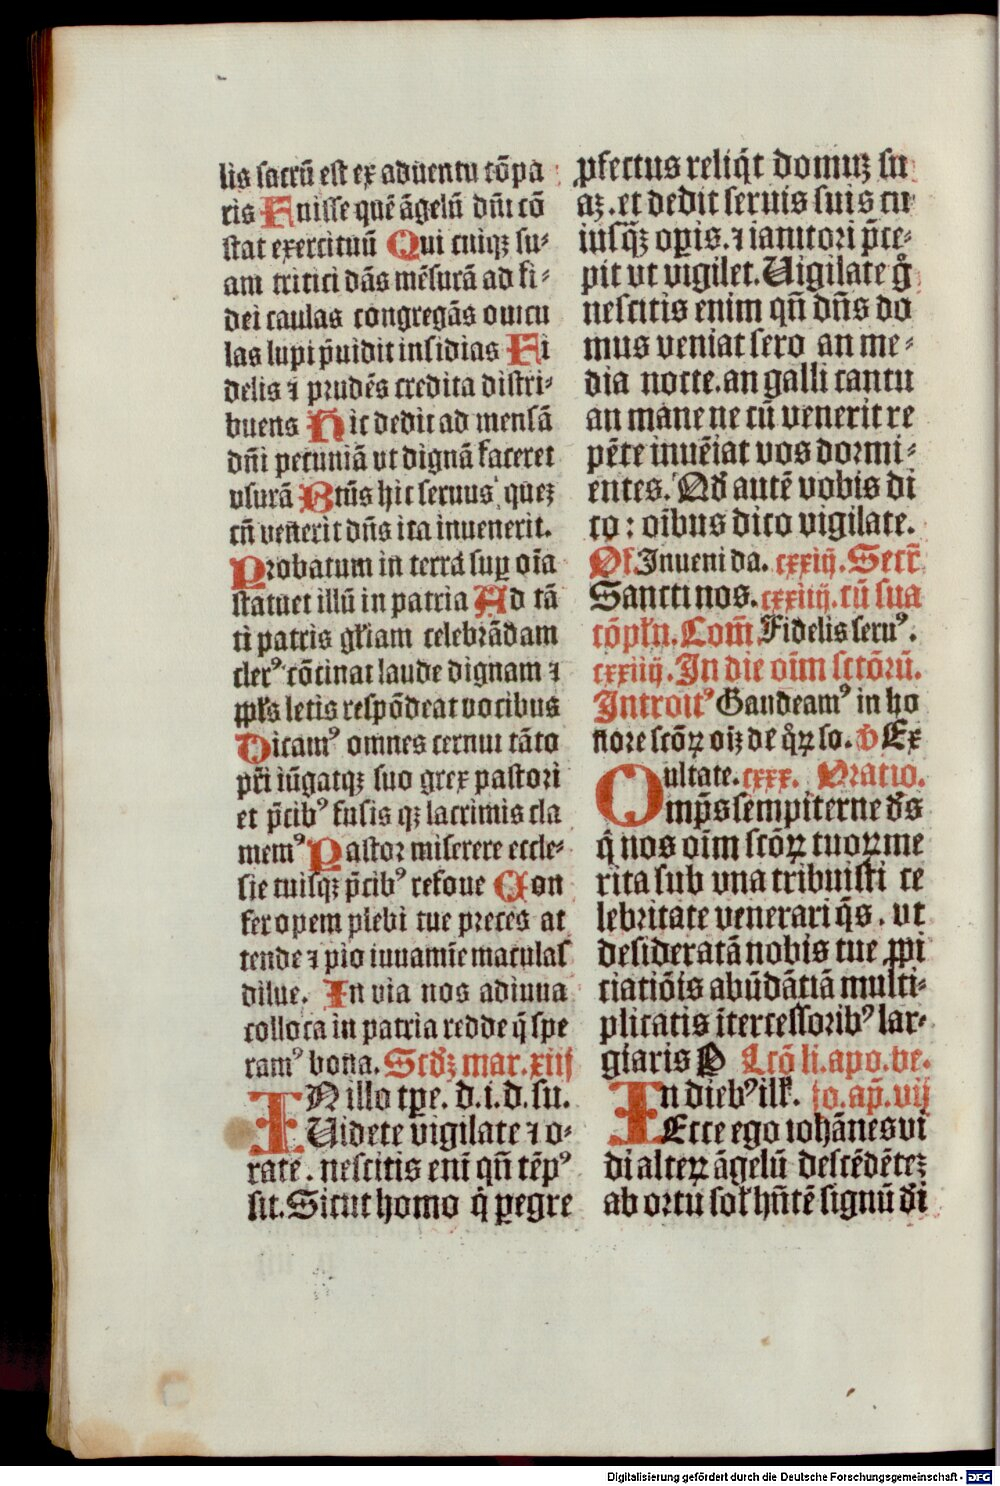 lis sacrū est ex aduentu tōpa
ris Fuisse quē āgelū dn̄i cō
stat exercituū Qui cuiqꝫ su-
am tritici dās mēsurā ad fi-
dei caulas congregās ouicu
las lupi p̄uidit insidias Fi
delis ⁊ prudēs credita distri-
buens Hic dedit ad mensā
dn̄i pecuniā vt dignā faceret
vsurā Btūs hic seruus quez
cū venerit dn̄s ita inuenerit.
Probatum in terra suꝑ oīa
statuet illū in patria Ad tā
ti patris gl̄iam celebrādam
clerꝰ cōcinat laude dignam ⁊
ppl̄s letis respōdeat vocibus
Dicamꝰ omnes cernui tāto
pr̄i iūgatqꝫ suo grex pastori
et p̄cibꝰ fusis qꝫ lacrimis cla
memꝰ Pastor miserere eccle-
sie tuisqꝫ p̄cibꝰ refoue Con
fer opem plebi tue preces at
tende ⁊ pio iuuamīe maculas
dilue. In via nos adiuua
colloca in patria redde q̄ spe
ramꝰ bona. Scd̄ꝫ mar. xiij
IN illo tꝑe. d.i.d.su.
Uidete vigilate ⁊ o-
rate. nescitis enī qn̄ tēpꝰ
sit. Sicut homo q̇ ꝑegre
ꝓfectus reliq̇t domuꝫ su
aꝫ. et dedit seruis suis cu
iusqꝫ oꝑis. ⁊ ianitori p̄ce-
pit vt vigilet. Uigilate gͦ
nescitis enim qn̄ dn̄s do
mus veniat sero an me-
dia nocte. an galli cantu
an mane ne cū venerit re
pēte inuēiat vos dormi-
entes. Qd̄ autē vobis di
co : oībus dico vigilate.
Of. Inueni da. cxxiij. Secr̄
Sancti nos. cxxiiij. cū sua
cōpl̄n. Com̄ Fidelis seruꝰ.
cxxiiij. In die oīm sctōrū.
Introitꝰ Gaudeamꝰ in ho
nore scōꝝ oīꝫ de q̇ꝝ so. v̄ Ex
ultate. cxxx. Oratio.
Omp̄s sempiterne d̄s
q̇ nos oīm scōꝝ tuoꝝ me
rita sub vna tribuisti ce
lebritate venerari q̄s. vt
desideratā nobis tue ꝓpi
ciatiōis abūdātiā multi-
plicatis ītercessoribꝰ lar-
giaris P Lcō li. apo. be.
In diebꝰ ill̄. io. ap̄. vij
Ecce ego iohānes vi
di alteꝝ āgelū descēdēteꝫ
ab ortu sol̄ hn̄tē signū d̄i
Digitalisierung gefördert durch die Deutsche Forschungsgemeinschaft - DFG